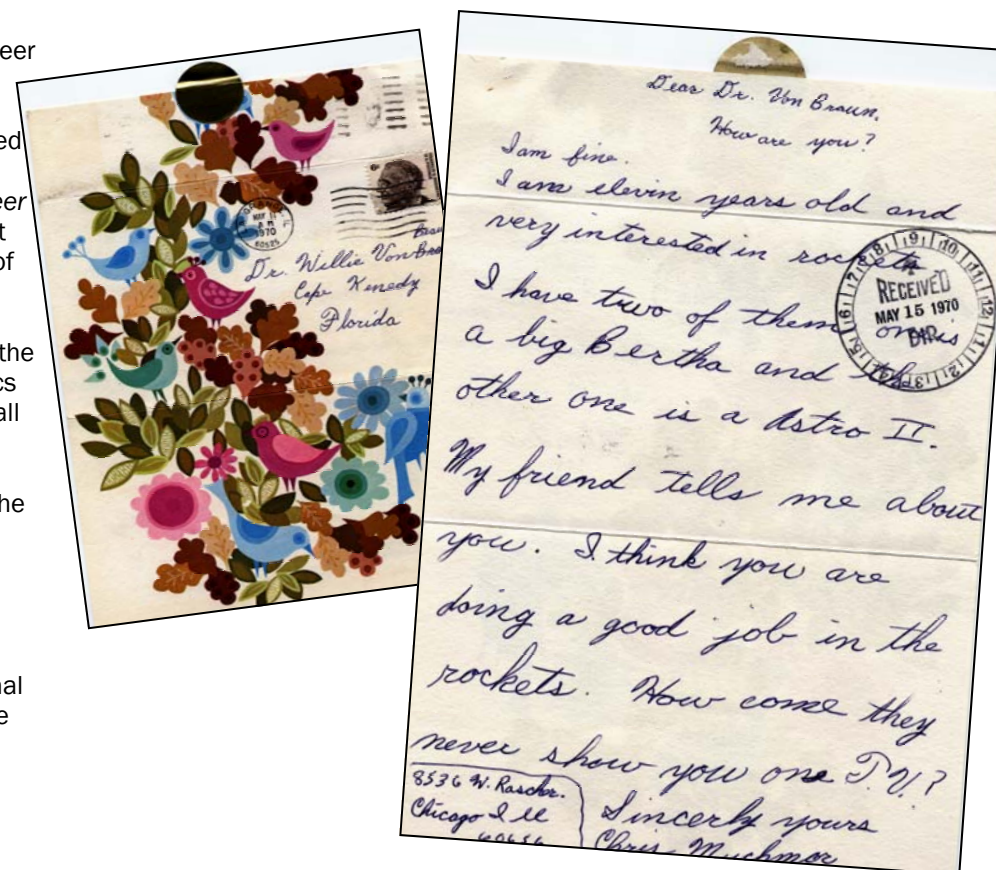 eer
ed
eer
t
of
the
cs
all
he
nal
e
MAY
1970
60525
6¢
Dr. Willie Von
Cape Kenedy
Florida
Dear Dr. Von Braun,
How are you?
I am fine.
I am elevin years old and
very interested in rockets
I have two of them one is
a big Bertha and the
other one is a Astro II.
My friend tells me about
you. I think you are
doing a good job in the
rockets. How come they
never show you one T.V.?
Sincerly yours
Chris Muchmor
8536 W. Rascher.
Chicago Ill
60656
6 7 8 9 10 11 12 1 2 3 4 5
RECEIVED
MAY 15 1970
DIR